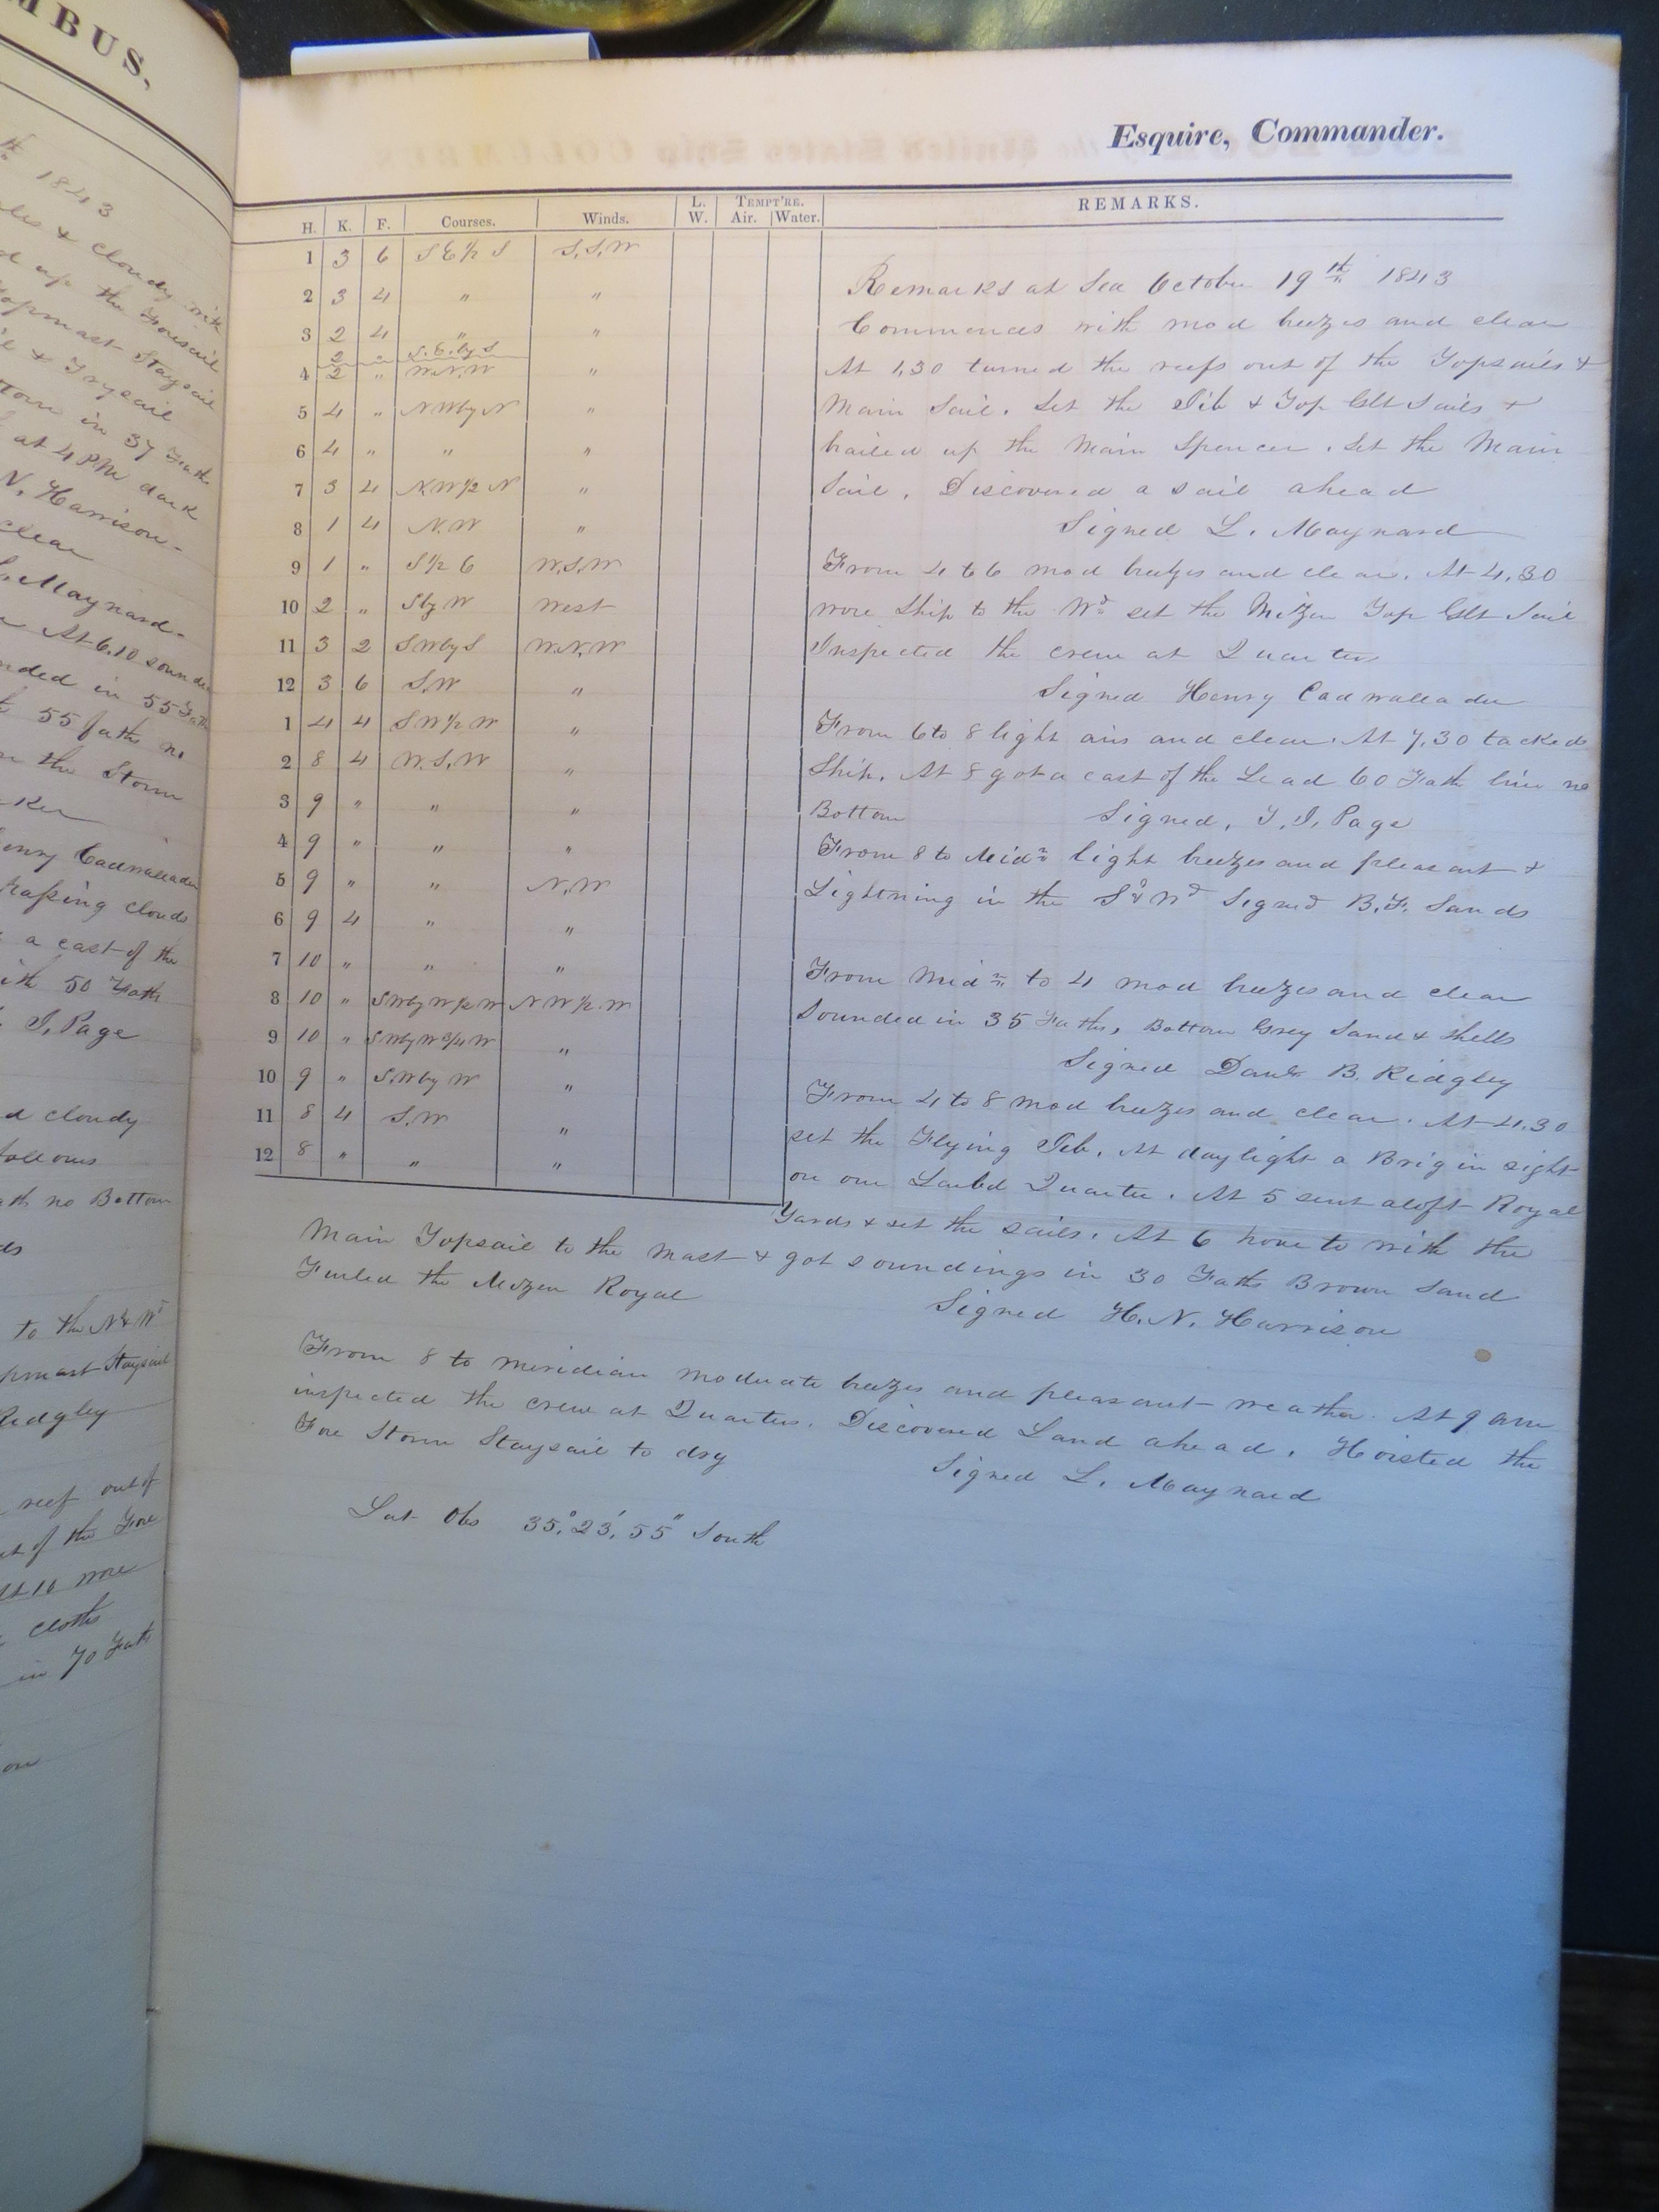 MBUS,
1843
& cloudy with
up the Foresail
Topmast Staysail
& Trysail
in 37 Fath
at 4 PM dark
N. Harrison
clear
L. Maynard
At 6.10 sounded
in 55 Fath
55 fath no
the Storm
Henry Cadwalader
passing clouds
a cast of the
with 50 Fath
J. Page
cloudy
follows
no Bottom
to the N & Wd
Topmast Staysail
Ridgley
reef out of
of the Fore
At 10 wore
cloths
in 70 Fath
Esquire, Commander.
H. K. F. Courses. Winds. L. W. TEMPT'RE. Air. Water. REMARKS.
1 3 6 S E 1/2 S S.S.W
2 3 4 " "
3 2 4 " "
2 " S.E. by S
4 2 " W.N.W "
5 4 " N W by N "
6 4 " " "
7 3 4 N W 1/2 N "
8 1 4 N.W "
9 1 " S 1/2 E W.S.W
10 2 " S by W West
11 3 2 S W by S W.N.W
12 3 6 S.W "
1 4 4 S W 1/2 W "
2 8 4 W.S.W "
3 9 " " "
4 9 " " "
5 9 " " N.W
6 9 4 " "
7 10 " " "
8 10 " S W by W 1/2 W N W 1/2 W
9 10 " S W by W 3/4 W "
10 9 " S.W by W "
11 8 4 S.W "
12 8 " " "
Remarks at Sea October 19th 1843
Commences with mod breezes and clear
At 1,30 turned the reefs out of the Topsails &
Main Sail. Set the Jib & Top Glt Sails &
hailed up the Main Spencer. Set the Main
Sail. Discovered a sail ahead
Signed L. Maynard
From 4 to 6 mod breezes and clear. At 4,30
wore ship to the Wd set the Mizen Top Glt Sail
Inspected the crew at Quarters
Signed Henry Cadwalader
From 6 to 8 light airs and clear. At 7,30 tacked
Ship. At 8 got a cast of the Lead 60 Fath line no
Bottom Signed, T. J. Page
From 8 to Midn light breezes and pleasant &
Lightning in the Sd & Wd Signed B. F. Sands
From Midn to 4 mod breezes and clear
Sounded in 35 Faths, Bottom Grey Sand & Shells
Signed Danl B. Ridgley
From 4 to 8 mod breezes and clear. At 4.30
set the Flying Jib. At daylight a Brig in sight
on our Larbd Quarter. At 5 sent aloft Royal
Yards & set the sails. At 6 hove to with the
Main Topsail to the Mast & got soundings in 30 Faths Brown Sand
Furled the Mizen Royal Signed H. N. Harrison
From 8 to meridian moderate breezes and pleasant weather. At 9 am
inspected the crew at Quarters. Discovered Land ahead. Hoisted the
Fore Storm Staysail to dry Signed L. Maynard
Lat Obs 35° 23' 55" South